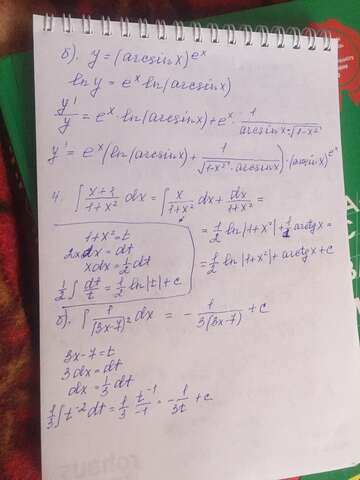 б). y = (arcsinx)^e^x
ln y = e^x ln(arcsinx)
y'/y = e^x · ln(arcsinx) + e^x · 1/(arcsinx · √(1-x²))
y' = e^x (ln(arcsinx) + 1/(√(1-x²) · arcsinx)) · (arcsinx)^e^x
4. ∫ (x+1)/(1+x²) dx = ∫ x/(1+x²) dx + dx/(1+x²) =
1+x² = t
2xdx = dt
xdx = 1/2 dt
1/2 ∫ dt/t = 1/2 ln|t| + c
= 1/2 ln|1+x²| + 1/1 arctgx =
= 1/2 ln|1+x²| + arctgx + c
б). ∫ 1/(3x-7)² dx = - 1/(3(3x-7)) + c
3x-7 = t
3dx = dt
dx = 1/3 dt
1/3 ∫ t^-2 dt = 1/3 t^-1/-1 = - 1/3t + c
rohaus